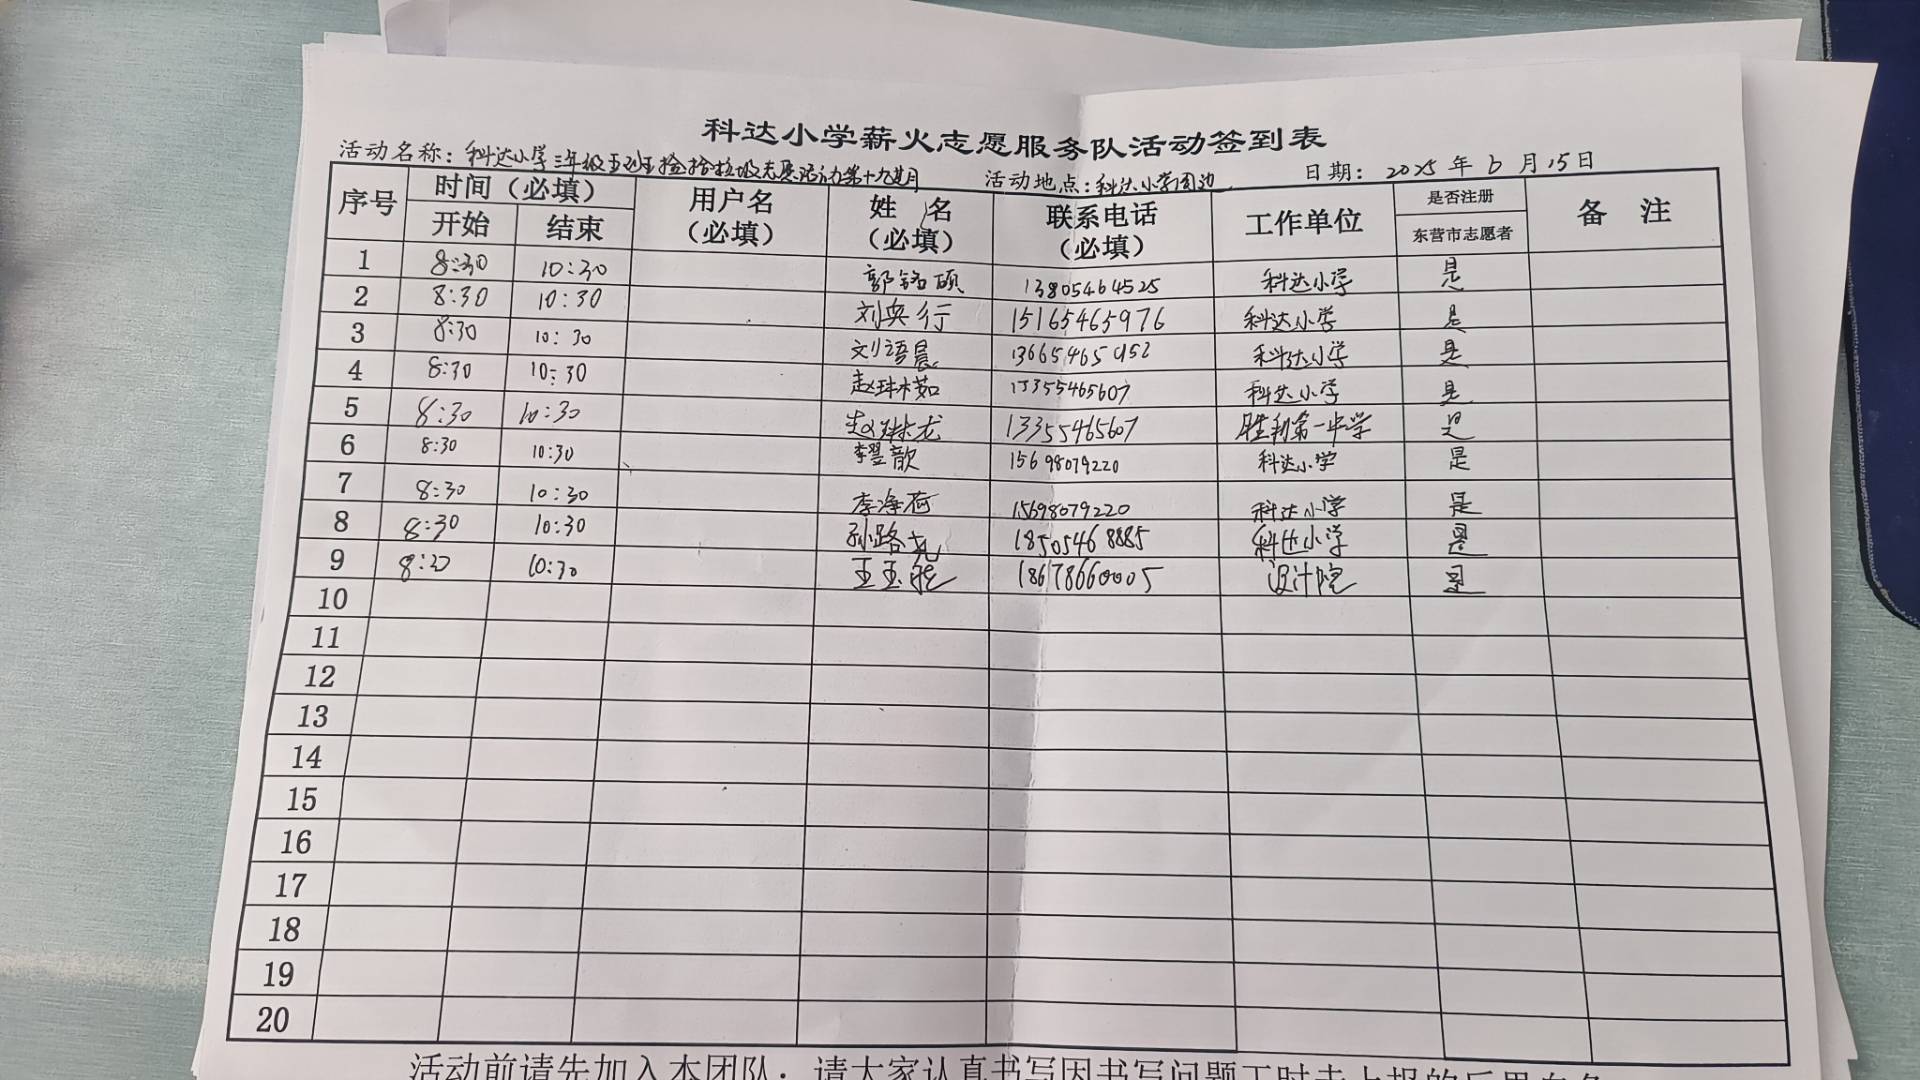 科达小学薪火志愿服务队活动签到表
活动名称：科达小学三年级五班捡拾垃圾志愿活动第十九期 活动地点：科达小学周边 日期： 2025 年 6 月 15 日
序号 时间（必填） 用户名（必填） 姓 名（必填） 联系电话（必填） 工作单位 是否注册 东营市志愿者 备 注
开始 结束
1 8:30 10:30 郭铭硕 13805464525 科达小学 是
2 8:30 10:30 刘奕行 15165465976 科达小学 是
3 8:30 10:30 刘语晨 13665465152 科达小学 是
4 8:30 10:30 赵琳茹 13355465607 科达小学 是
5 8:30 10:30 赵琳龙 13355465607 胜利第一中学 是
6 8:30 10:30 李翌歆 15698079220 科达小学 是
7 8:30 10:30 李净荷 15698079220 科达小学 是
8 8:30 10:30 孙路尧 18505468885 科达小学 是
9 8:30 10:30 王玉 18678660005 设计院 是
10
11
12
13
14
15
16
17
18
19
20
活动前请先加入本团队；请大家认真书写因书写问题工时未上报的后果自负